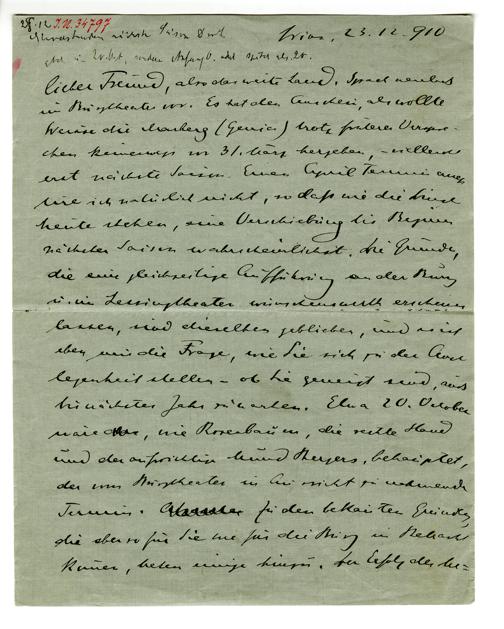 28.12 I.N. 34797
nächste Saison
Wien, 23.12.910
lieber Freund, also das weite Land. Sprach neulich
im Burgtheater vor. Es hat den Anschein, als wollte
die Marberg (Genia) trotz früherer Verspre-
chen keineswegs vor 31. März hergeben, – vielleicht
erst nächste Saison. Einen April Termin
ich natürlich nicht, so daß wie die Dinge
heute stehen, eine Verschiebung bis Beginn
nächster Saison wahrscheinlich ist. Die Gründe,
die eine gleichzeitige Aufführung an der Burg
u. im Lessingtheater wünschenswerth erscheinen
lassen, sind dieselben geblieben, und es ist
eben nur die Frage, wie Sie sich zu der Ange-
legenheit stellen – ob Sie geneigt sind, auch
bis nächstes Jahr zu warten. Etwa 20. October
wäre, wie Rosenbaum, die rechte Hand
und der aufrichtige Mund Bergers, behauptet,
der vom Burgtheater in Aussicht zu nehmende
Termin. Zu den bekannten Gründen,
die ebenso für Sie wie für die Burg in Betracht
kämen, treten einige hinzu. Der Erfolg des